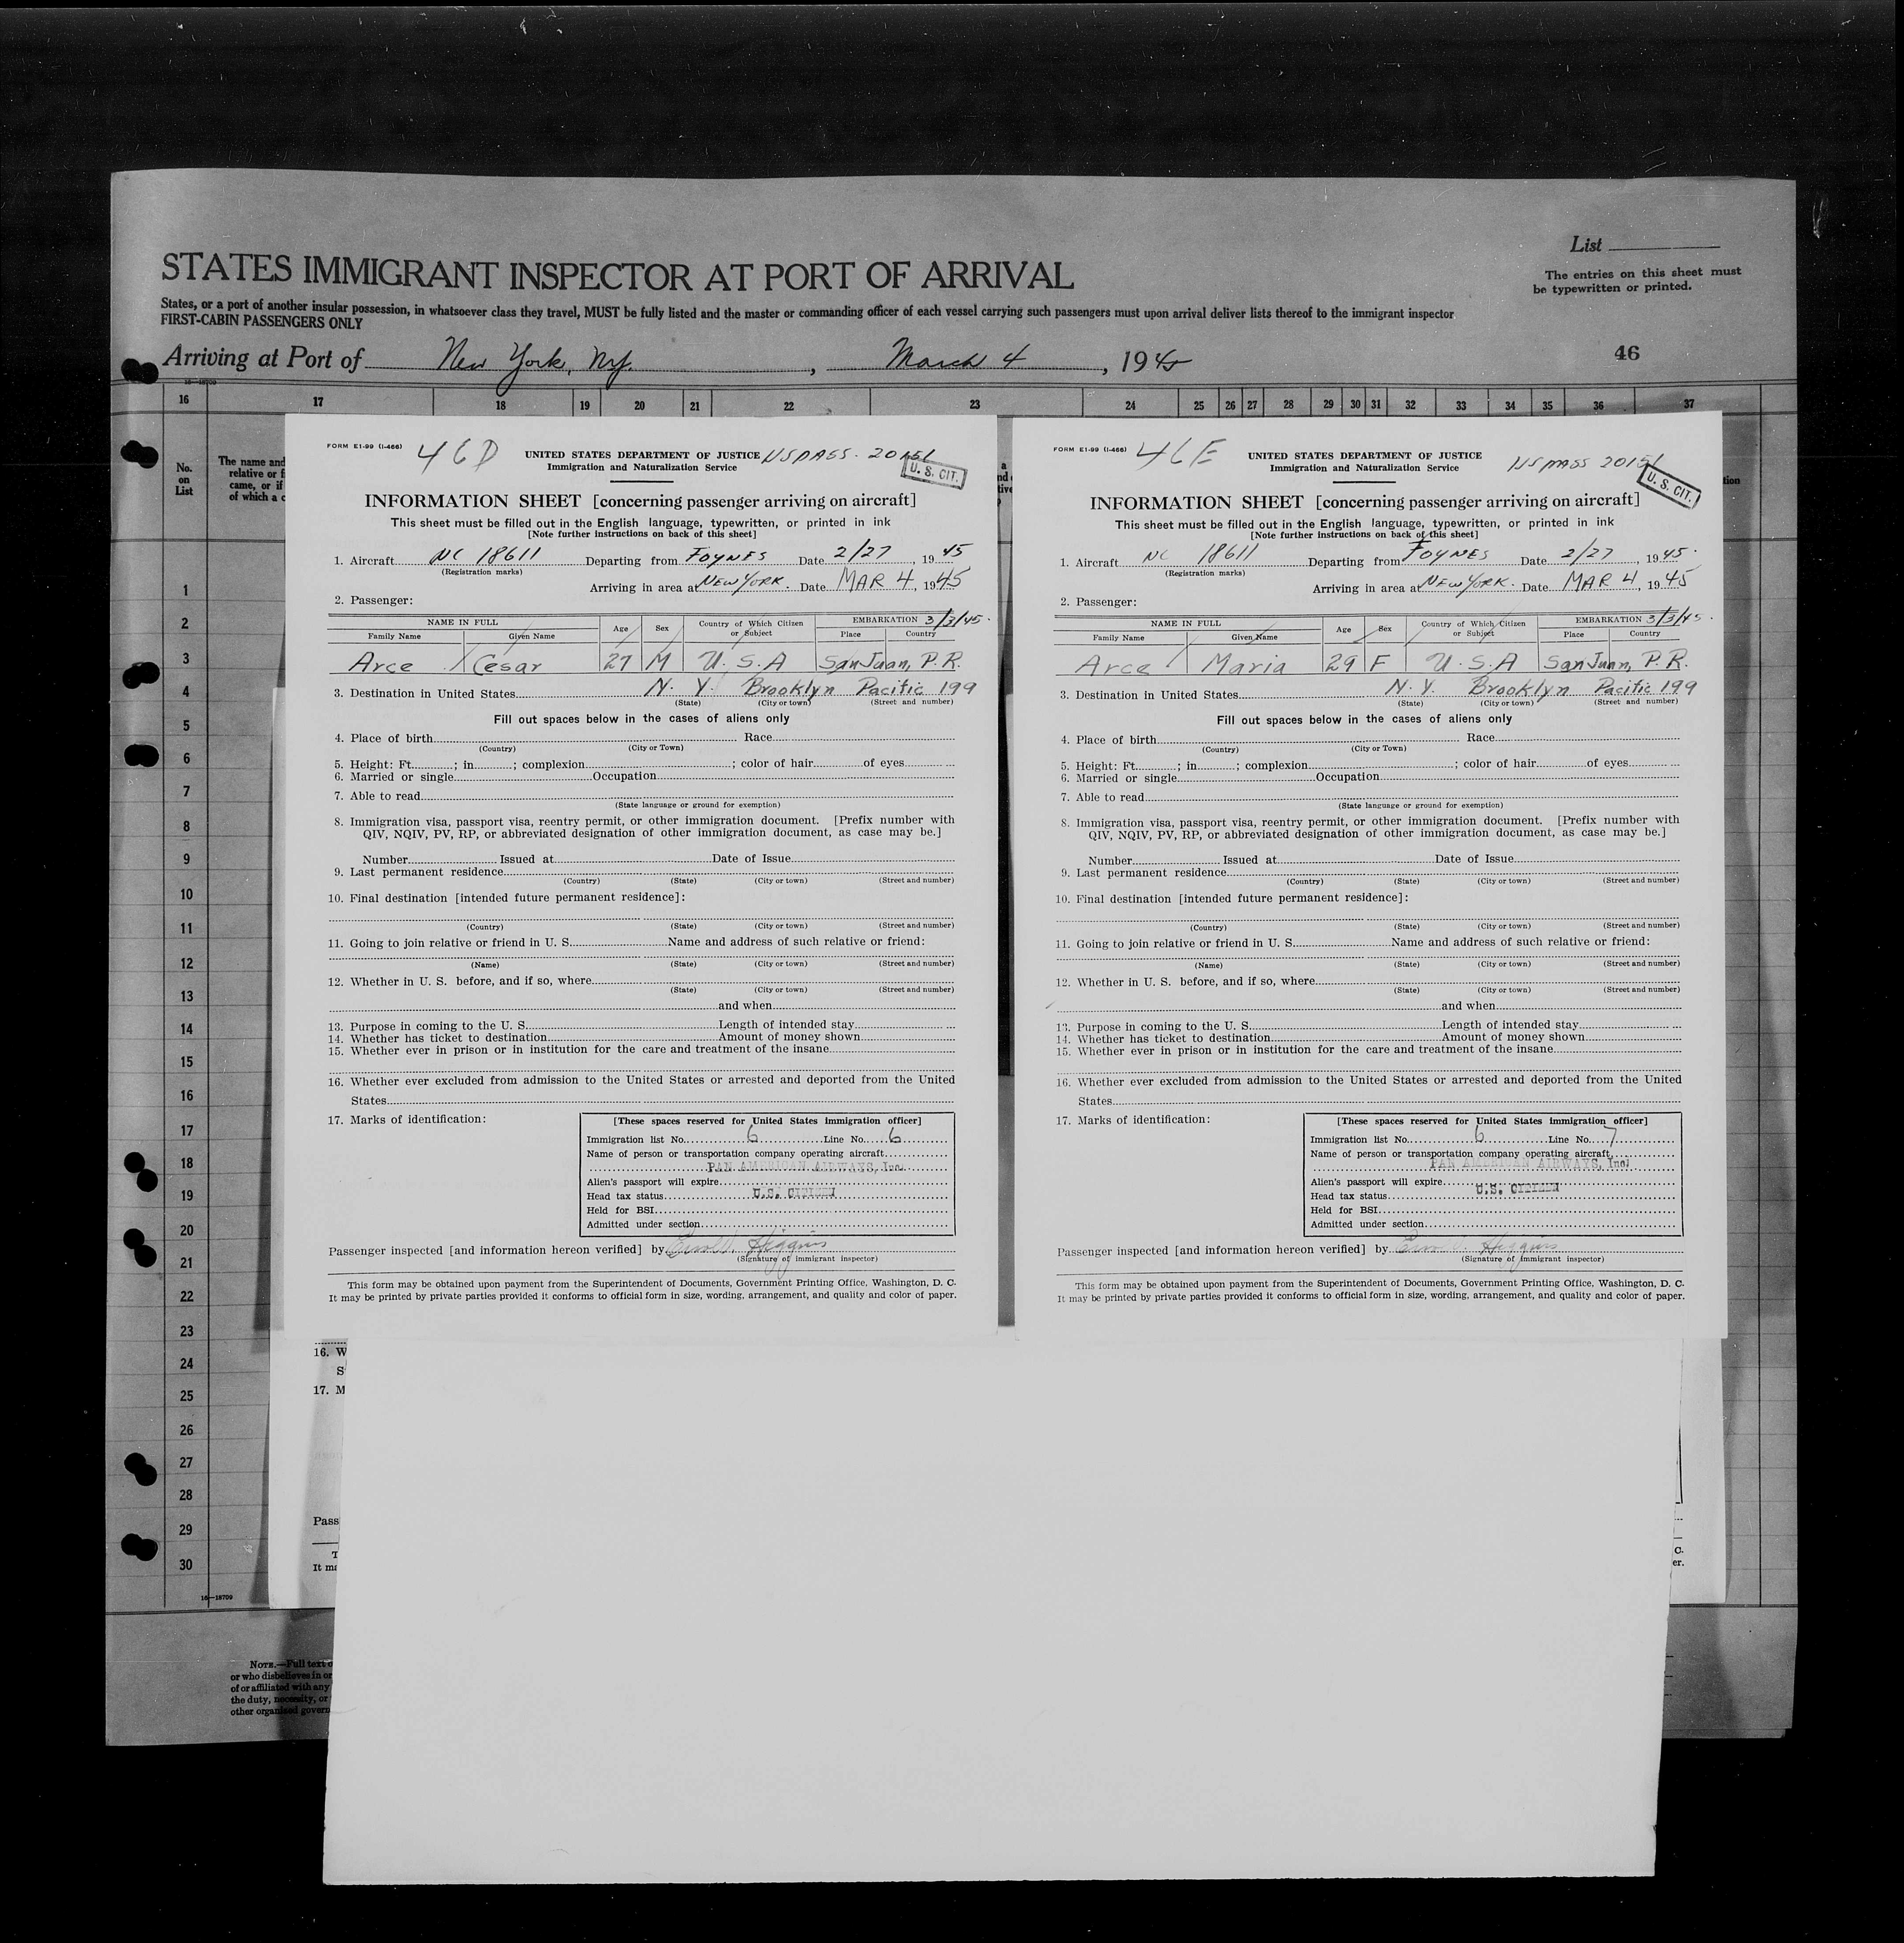 List
The entries on this sheet must
be typewritten or printed.
STATES IMMIGRANT INSPECTOR AT PORT OF ARRIVAL
States, or a port of another insular possession, in whatsoever class they travel, MUST be fully listed and the master or commanding officer of each vessel carrying such passengers must upon arrival deliver lists thereof to the immigrant inspector
FIRST-CABIN PASSENGERS ONLY
Arriving at Port of New York, Ny. , March 4 , 1945
46
16—18709
16 17 18 19 20 21 22 23 24 25 26 27 28 29 30 31 32 33 34 35 36 37
No.
on
List
The name and
relative or f
came, or if
of which a c
1
2
3
4
5
6
7
8
9
10
11
12
13
14
15
16
17
18
19
20
21
22
23
24
25
26
27
28
29
30
16—18709
FORM E1-99 (I-466)
46D
UNITED STATES DEPARTMENT OF JUSTICE
US PASS. 20151
Immigration and Naturalization Service
U. S. CIT.
INFORMATION SHEET [concerning passenger arriving on aircraft]
This sheet must be filled out in the English language, typewritten, or printed in ink
[Note further instructions on back of this sheet]
1. Aircraft NC 18611 Departing from FOYNES Date 2/27, 1945
(Registration marks)
Arriving in area at NEW YORK. Date MAR 4, 1945
2. Passenger:
NAME IN FULL Age Sex Country of Which Citizen or Subject EMBARKATION 3/3/45.
Family Name Given Name Place Country
Arce Cesar 27 M U.S.A San Juan, P.R.
3. Destination in United States N. Y. Brooklyn Pacific 199
(State) (City or town) (Street and number)
Fill out spaces below in the cases of aliens only
4. Place of birth Race
(Country) (City or Town)
5. Height: Ft. ; in. ; complexion ; color of hair of eyes
6. Married or single Occupation
7. Able to read
(State language or ground for exemption)
8. Immigration visa, passport visa, reentry permit, or other immigration document. [Prefix number with
QIV, NQIV, PV, RP, or abbreviated designation of other immigration document, as case may be.]
Number Issued at Date of Issue
9. Last permanent residence
(Country) (State) (City or town) (Street and number)
10. Final destination [intended future permanent residence]:
(Country) (State) (City or town) (Street and number)
11. Going to join relative or friend in U. S. Name and address of such relative or friend:
(Name) (State) (City or town) (Street and number)
12. Whether in U. S. before, and if so, where
(State) (City or town) (Street and number)
and when
13. Purpose in coming to the U. S. Length of intended stay
14. Whether has ticket to destination Amount of money shown
15. Whether ever in prison or in institution for the care and treatment of the insane
16. Whether ever excluded from admission to the United States or arrested and deported from the United
States
17. Marks of identification:
[These spaces reserved for United States immigration officer]
Immigration list No. 6 Line No. 6
Name of person or transportation company operating aircraft
PAN AMERICAN AIRWAYS, Inc.
Alien's passport will expire
Head tax status U.S. CITIZEN
Held for BSI
Admitted under section
Passenger inspected [and information hereon verified] by Higgins
(Signature of immigrant inspector)
This form may be obtained upon payment from the Superintendent of Documents, Government Printing Office, Washington, D. C.
It may be printed by private parties provided it conforms to official form in size, wording, arrangement, and quality and color of paper.
FORM E1-99 (I-466)
46E
UNITED STATES DEPARTMENT OF JUSTICE
US PASS 20151
Immigration and Naturalization Service
U. S. CIT.
INFORMATION SHEET [concerning passenger arriving on aircraft]
This sheet must be filled out in the English language, typewritten, or printed in ink
[Note further instructions on back of this sheet]
1. Aircraft NC 18611 Departing from FOYNES Date 2/27, 1945.
(Registration marks)
Arriving in area at NEW YORK. Date MAR 4, 1945
2. Passenger:
NAME IN FULL Age Sex Country of Which Citizen or Subject EMBARKATION 3/3/45.
Family Name Given Name Place Country
Arce Maria 29 F U.S.A San Juan, P.R.
3. Destination in United States N. Y. Brooklyn Pacific 199
(State) (City or town) (Street and number)
Fill out spaces below in the cases of aliens only
4. Place of birth Race
(Country) (City or Town)
5. Height: Ft. ; in. ; complexion ; color of hair of eyes
6. Married or single Occupation
7. Able to read
(State language or ground for exemption)
8. Immigration visa, passport visa, reentry permit, or other immigration document. [Prefix number with
QIV, NQIV, PV, RP, or abbreviated designation of other immigration document, as case may be.]
Number Issued at Date of Issue
9. Last permanent residence
(Country) (State) (City or town) (Street and number)
10. Final destination [intended future permanent residence]:
(Country) (State) (City or town) (Street and number)
11. Going to join relative or friend in U. S. Name and address of such relative or friend:
(Name) (State) (City or town) (Street and number)
12. Whether in U. S. before, and if so, where
(State) (City or town) (Street and number)
and when
13. Purpose in coming to the U. S. Length of intended stay
14. Whether has ticket to destination Amount of money shown
15. Whether ever in prison or in institution for the care and treatment of the insane
16. Whether ever excluded from admission to the United States or arrested and deported from the United
States
17. Marks of identification:
[These spaces reserved for United States immigration officer]
Immigration list No. 6 Line No. 7
Name of person or transportation company operating aircraft
PAN AMERICAN AIRWAYS, Inc.
Alien's passport will expire
Head tax status U.S. CITIZEN
Held for BSI
Admitted under section
Passenger inspected [and information hereon verified] by Higgins
(Signature of immigrant inspector)
This form may be obtained upon payment from the Superintendent of Documents, Government Printing Office, Washington, D. C.
It may be printed by private parties provided it conforms to official form in size, wording, arrangement, and quality and color of paper.
16. W
S
17. M
Pass
T
It ma
C.
er.
NOTE.—Full text o
or who disbelieves in or
of or affiliated with any
the duty, necessity, or
other organized govern